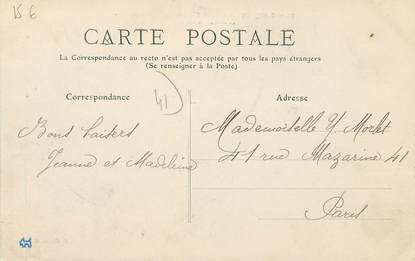 15 6
CARTE POSTALE
La Correspondance au recto n'est pas acceptée par tous les pays étrangers
(Se renseigner à la Poste)
Correspondance
41
Adresse
Bons baisers
Jeanne et Madeleine
Mademoiselle Y. Morlet
41 rue Mazarine 41
Paris